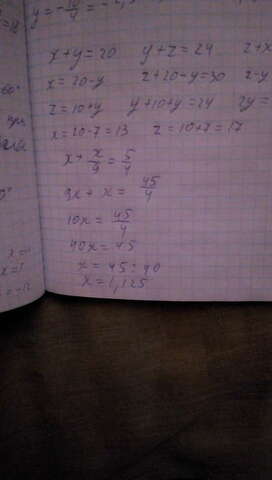 y = -
x + y = 20 y + z = 24 z + x
x = 20 - y z + 20 - y = 30 z - y
z = 10 + y y + 10 + y = 24 2y =
x = 20 - 7 = 13 z = 10 + 7 = 17
x + x/9 = 5/4
9x + x = 45/4
10x = 45/4
40x = 45
x = 45 : 40
x = 1,125